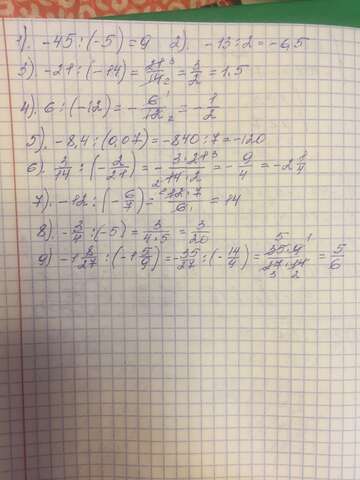 1). -45:(-5)=9 2). -13:2=-6,5
3). -21:(-14)=21³/14₂=3/2=1.5
4). 6:(-12)=-6¹/12₂=-1/2
5). -8,4:(0,07)=-840:7=-120
6). 3/14:(-2/21)=-3·21³/14₂·2=-9/4=-2 1/4
7). -12:(-6/7)=²12·7/6₁=14
8). -3/4:(-5)=3/4·5=3/20
9) -1 8/27:(-1 5/9)=-35/27:(-14/9)=⁵35·9¹/27₃·14₂=5/6